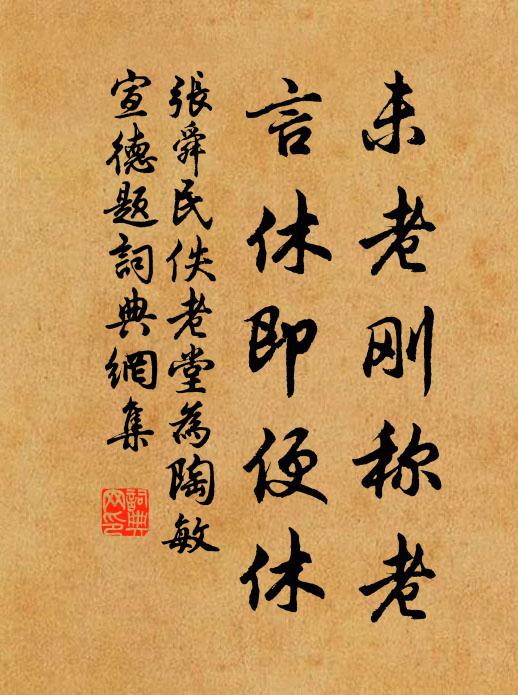 未老刚称老
言休即便休
張舜民佚老堂為陶敏
宣德题詞典網集
詞典
网印